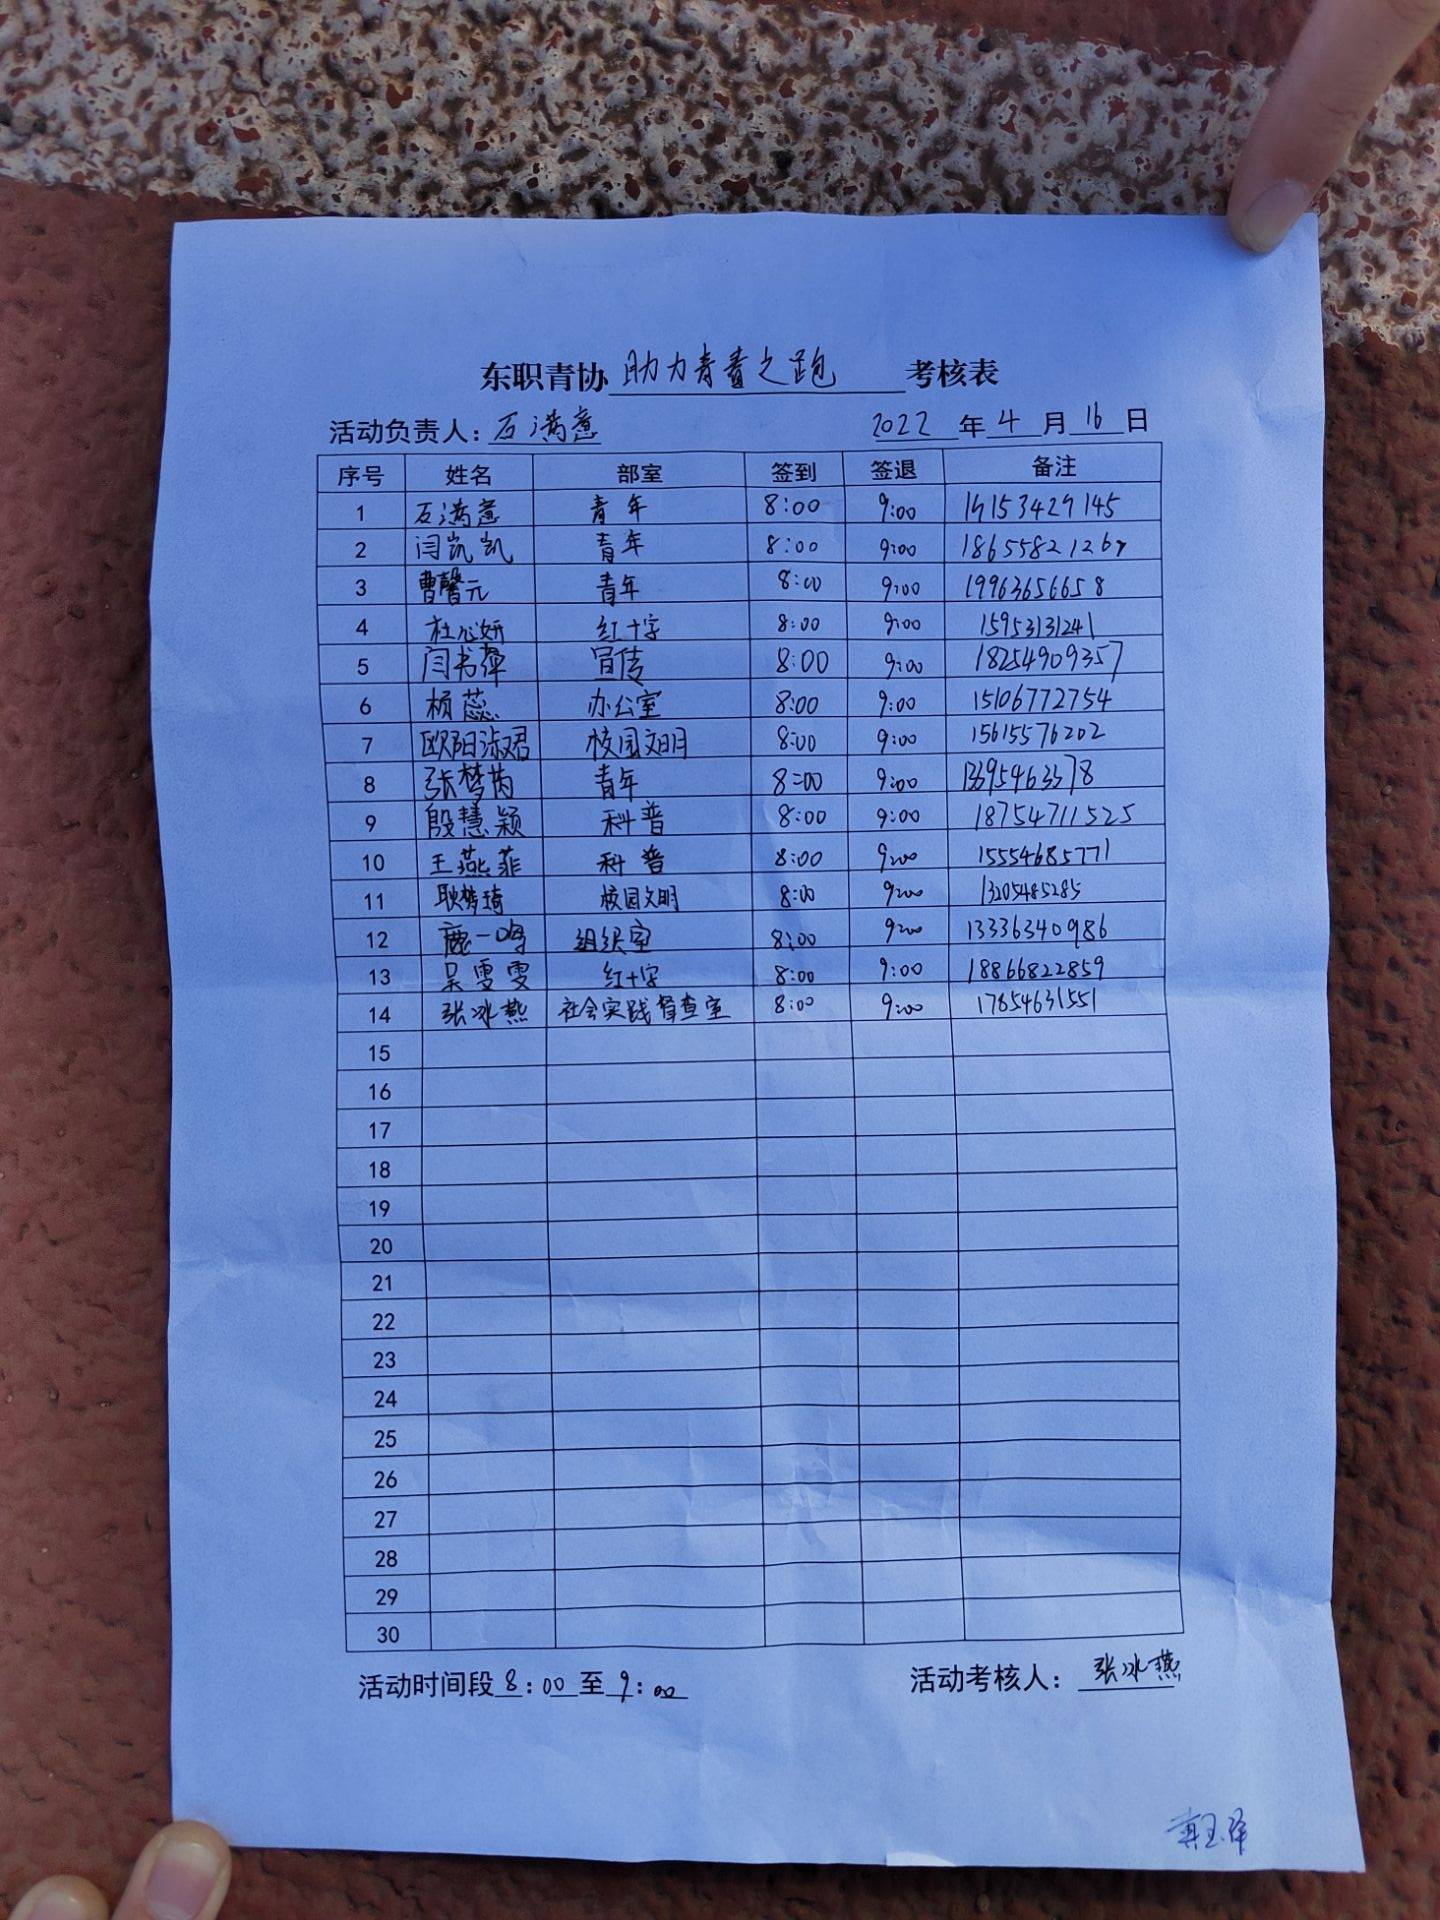 东职青协 助力青春之跑 考核表
活动负责人: 石满意 2022 年 4 月 16 日
序号 姓名 部室 签到 签退 备注
1 石满意 青年 8:00 9:00 153429145
2 闫凯凯 青年 8:00 9:00
3 曹馨元 青年 8:00 9:00 19963656658
4 杜心妍 红十字 8:00 9:00 15953131241
5 闫书萍 宣传 8:00 9:00 18254909357
6 杨蕊 办公室 8:00 9:00 15106772754
7 欧阳淑君 校园文明 8:00 9:00 15615576202
8 张梦芮 青年 8:00 9:00 13395463378
9 殷慧颖 科普 8:00 9:00 18754711525
10 王燕菲 科普 8:00 9:00 15554685771
11 耿梦琦 校园文明 8:00 9:00 13205485285
12 鹿一鸣 组织室 8:00 9:00 13336340986
13 吴雯雯 红十字 8:00 9:00 18866822859
14 张冰燕 社会实践督查室 8:00 9:00 17854631551
15
16
17
18
19
20
21
22
23
24
25
26
27
28
29
30
活动时间段 8:00 至 9:00 活动考核人: 张冰燕